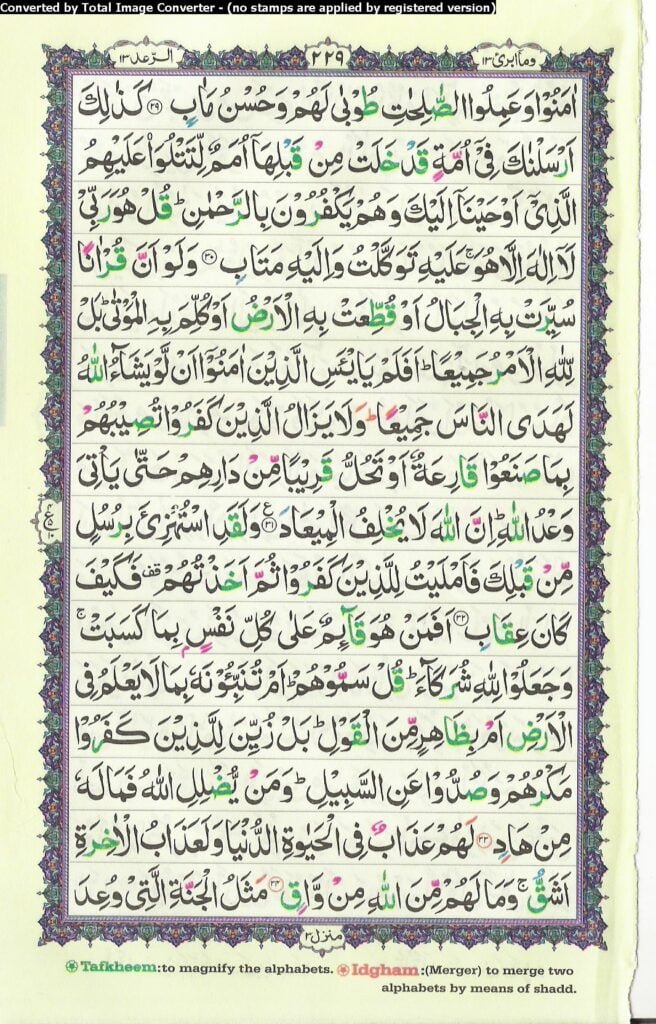 Converted by Total Image Converter - (no stamps are applied by registered version)
وما ابرئ ١٣
٢٢٩
الرعد ١٣
اٰمَنُوْا وَعَمِلُوا الصّٰلِحٰتِ طُوْبٰى لَهُمْ وَحُسْنُ مَاٰبٍ ۲۹ كَذٰلِكَ
اَرْسَلْنٰكَ فِىْٓ اُمَّةٍ قَدْ خَلَتْ مِنْ قَبْلِهَآ اُمَمٌ لِّتَتْلُوَا۟ عَلَيْهِمُ
الَّذِىْٓ اَوْحَيْنَآ اِلَيْكَ وَهُمْ يَكْفُرُوْنَ بِالرَّحْمٰنِ ؕ قُلْ هُوَ رَبِّىْ
لَآ اِلٰهَ اِلَّا هُوَ ۚ عَلَيْهِ تَوَكَّلْتُ وَاِلَيْهِ مَتَابِ ۳۰ وَلَوْ اَنَّ قُرْاٰنًا
سُيِّرَتْ بِهِ الْجِبَالُ اَوْ قُطِّعَتْ بِهِ الْاَرْضُ اَوْ كُلِّمَ بِهِ الْمَوْتٰى ؕ بَلْ
لِّلّٰهِ الْاَمْرُ جَمِيْعًا ؕ اَفَلَمْ يَايْـَٔسِ الَّذِيْنَ اٰمَنُوْٓا اَنْ لَّوْ يَشَآءُ اللّٰهُ
لَهَدَى النَّاسَ جَمِيْعًا ؕ وَلَا يَزَالُ الَّذِيْنَ كَفَرُوْا تُصِيْبُهُمْ
بِمَا صَنَعُوْا قَارِعَةٌ اَوْ تَحُلُّ قَرِيْبًا مِّنْ دَارِهِمْ حَتّٰى يَاْتِىَ
وَعْدُ اللّٰهِ ؕ اِنَّ اللّٰهَ لَا يُخْلِفُ الْمِيْعَادَ ۳۱ ع وَلَقَدِ اسْتُهْزِئَ بِرُسُلٍ
مِّنْ قَبْلِكَ فَاَمْلَيْتُ لِلَّذِيْنَ كَفَرُوْا ثُمَّ اَخَذْتُهُمْ قف فَكَيْفَ
كَانَ عِقَابِ ۳۲ اَفَمَنْ هُوَ قَآئِمٌ عَلٰى كُلِّ نَفْسٍۢ بِمَا كَسَبَتْ ۚ
وَجَعَلُوْا لِلّٰهِ شُرَكَآءَ ؕ قُلْ سَمُّوْهُمْ ؕ اَمْ تُنَبِّـُٔوْنَهٗ بِمَا لَا يَعْلَمُ فِى
الْاَرْضِ اَمْ بِظَاهِرٍ مِّنَ الْقَوْلِ ؕ بَلْ زُيِّنَ لِلَّذِيْنَ كَفَرُوْا
مَكْرُهُمْ وَصُدُّوْا عَنِ السَّبِيْلِ ؕ وَمَنْ يُّضْلِلِ اللّٰهُ فَمَا لَهٗ
مِنْ هَادٍ ۳۳ لَهُمْ عَذَابٌ فِى الْحَيٰوةِ الدُّنْيَا وَلَعَذَابُ الْاٰخِرَةِ
اَشَقُّ ۚ وَمَا لَهُمْ مِّنَ اللّٰهِ مِنْ وَّاقٍ ۳۴ مَثَلُ الْجَنَّةِ الَّتِىْ وُعِدَ
منزل ٣
Tafkheem:to magnify the alphabets. Idgham:(Merger) to merge two
alphabets by means of shadd.